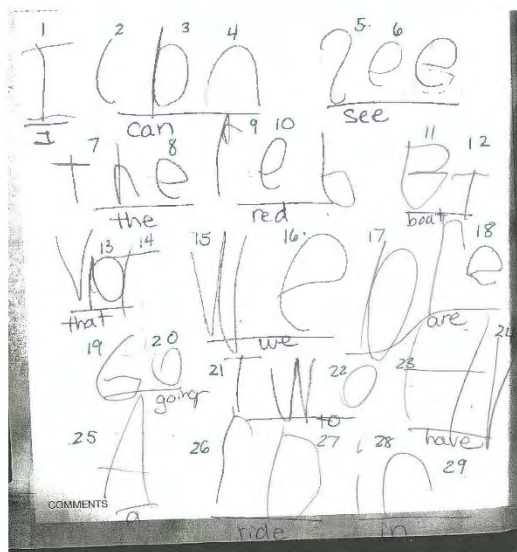 1 2 3 4 5. 6
I Cbn See
I can see
7 8 9 10 11 12
the reb Bt
the red boat
13 14 15 16 17 18
We
that we are
19 20 21 22 23 24
Go Two
going to have
25 26 27 28 29
A in
COMMENTS
a ride in